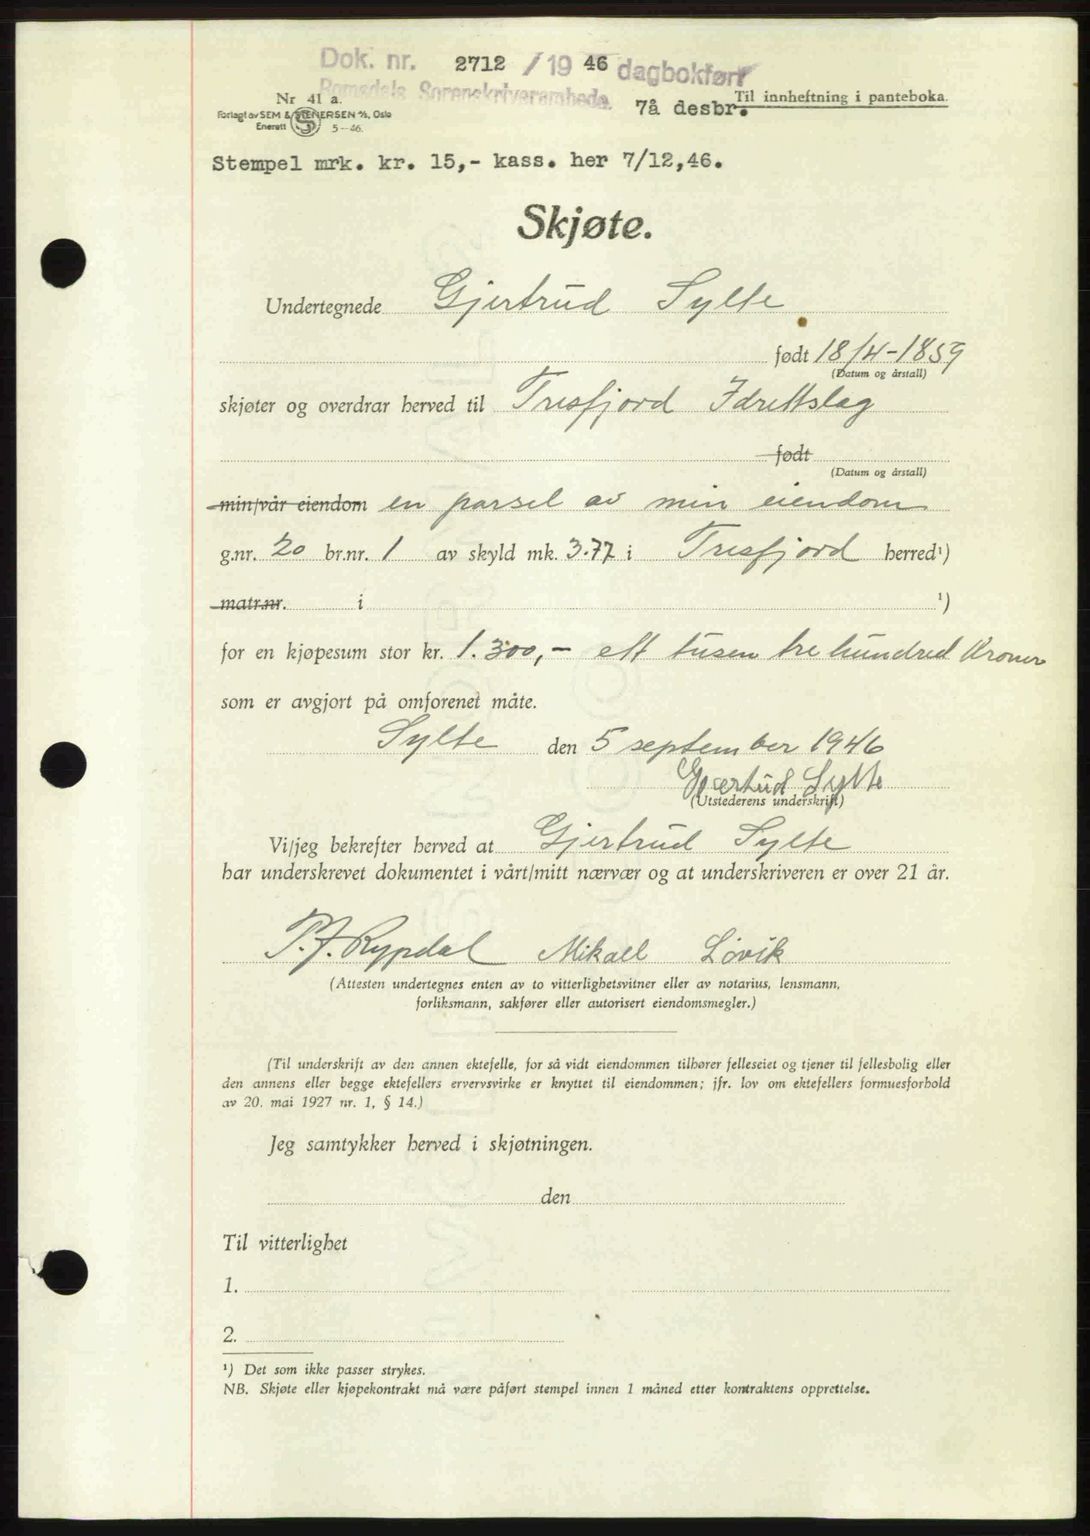 Dok. nr. 2712 / 19 46 dagbokført
Romsdals Sorenskriverembede.
7å desbr.
Til innheftning i panteboka.
Nr 41 a.
Forlagt av SEM & STENERSEN A/S, Oslo
Enerett S 5-46.
Stempel mrk. kr. 15,- kass. her 7/12,46.
Skjøte.
Undertegnede Gjertrud Sylte
født 18/4-1859
(Datum og årstall)
skjøter og overdrar herved til Tresfjord Idrettslag
født
(Datum og årstall)
min/vår eiendom en parsel av min eiendom
g.nr. 20 br.nr. 1 av skyld mk. 3.77 i Tresfjord herred¹)
matr.nr. i ¹)
for en kjøpesum stor kr. 1.300,- ett tusen tre hundred Kroner
som er avgjort på omforenet måte.
Sylte den 5 september 1946
Gjertrud Sylte
(Utstederens underskrift)
Vi/jeg bekrefter herved at Gjertrud Sylte
har underskrevet dokumentet i vårt/mitt nærvær og at underskriveren er over 21 år.
P. J. Rypdal Mikael Løvik
(Attesten undertegnes enten av to vitterlighetsvitner eller av notarius, lensmann,
forliksmann, sakfører eller autorisert eiendomsmegler.)
(Til underskrift av den annen ektefelle, for så vidt eiendommen tilhører felleseiet og tjener til fellesbolig eller
den annens eller begge ektefellers ervervsvirke er knyttet til eiendommen; jfr. lov om ektefellers formuesforhold
av 20. mai 1927 nr. 1, § 14.)
Jeg samtykker herved i skjøtningen.
den
Til vitterlighet
1.
2.
¹) Det som ikke passer strykes.
NB. Skjøte eller kjøpekontrakt må være påført stempel innen 1 måned etter kontraktens opprettelse.